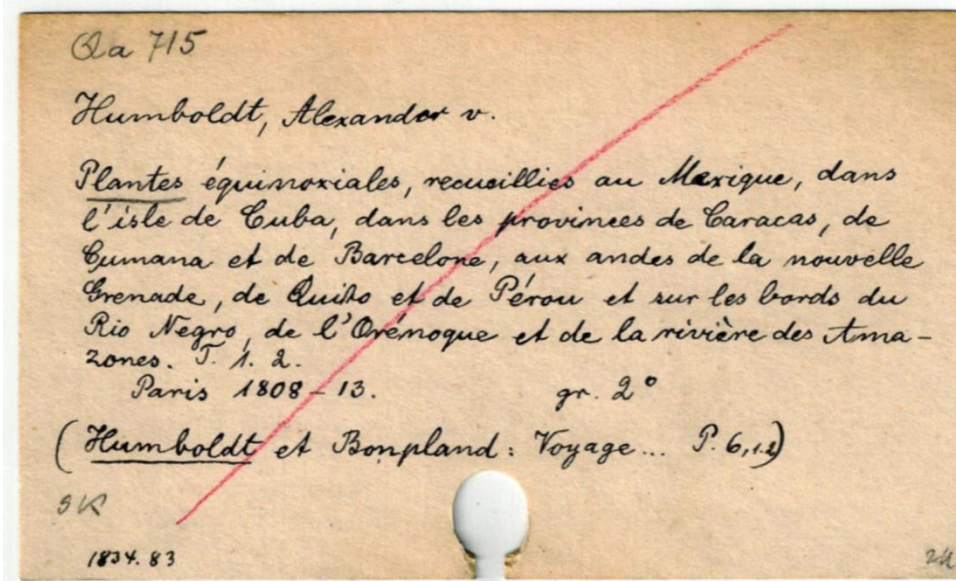 Qa 715
Humboldt, Alexander v.
Plantes équinoxiales, recueillies au Mexique, dans
l'isle de Cuba, dans les provinces de Caracas, de
Cumana et de Barcelone, aux andes de la nouvelle
Grenade, de Quito et de Pérou et sur les bords du
Rio Negro, de l'Orénoque et de la rivière des Ama-
zones. T. 1. 2.
Paris 1808-13. gr. 2°
(Humboldt et Bonpland: Voyage... P. 6,1.2)
SK
1834.83